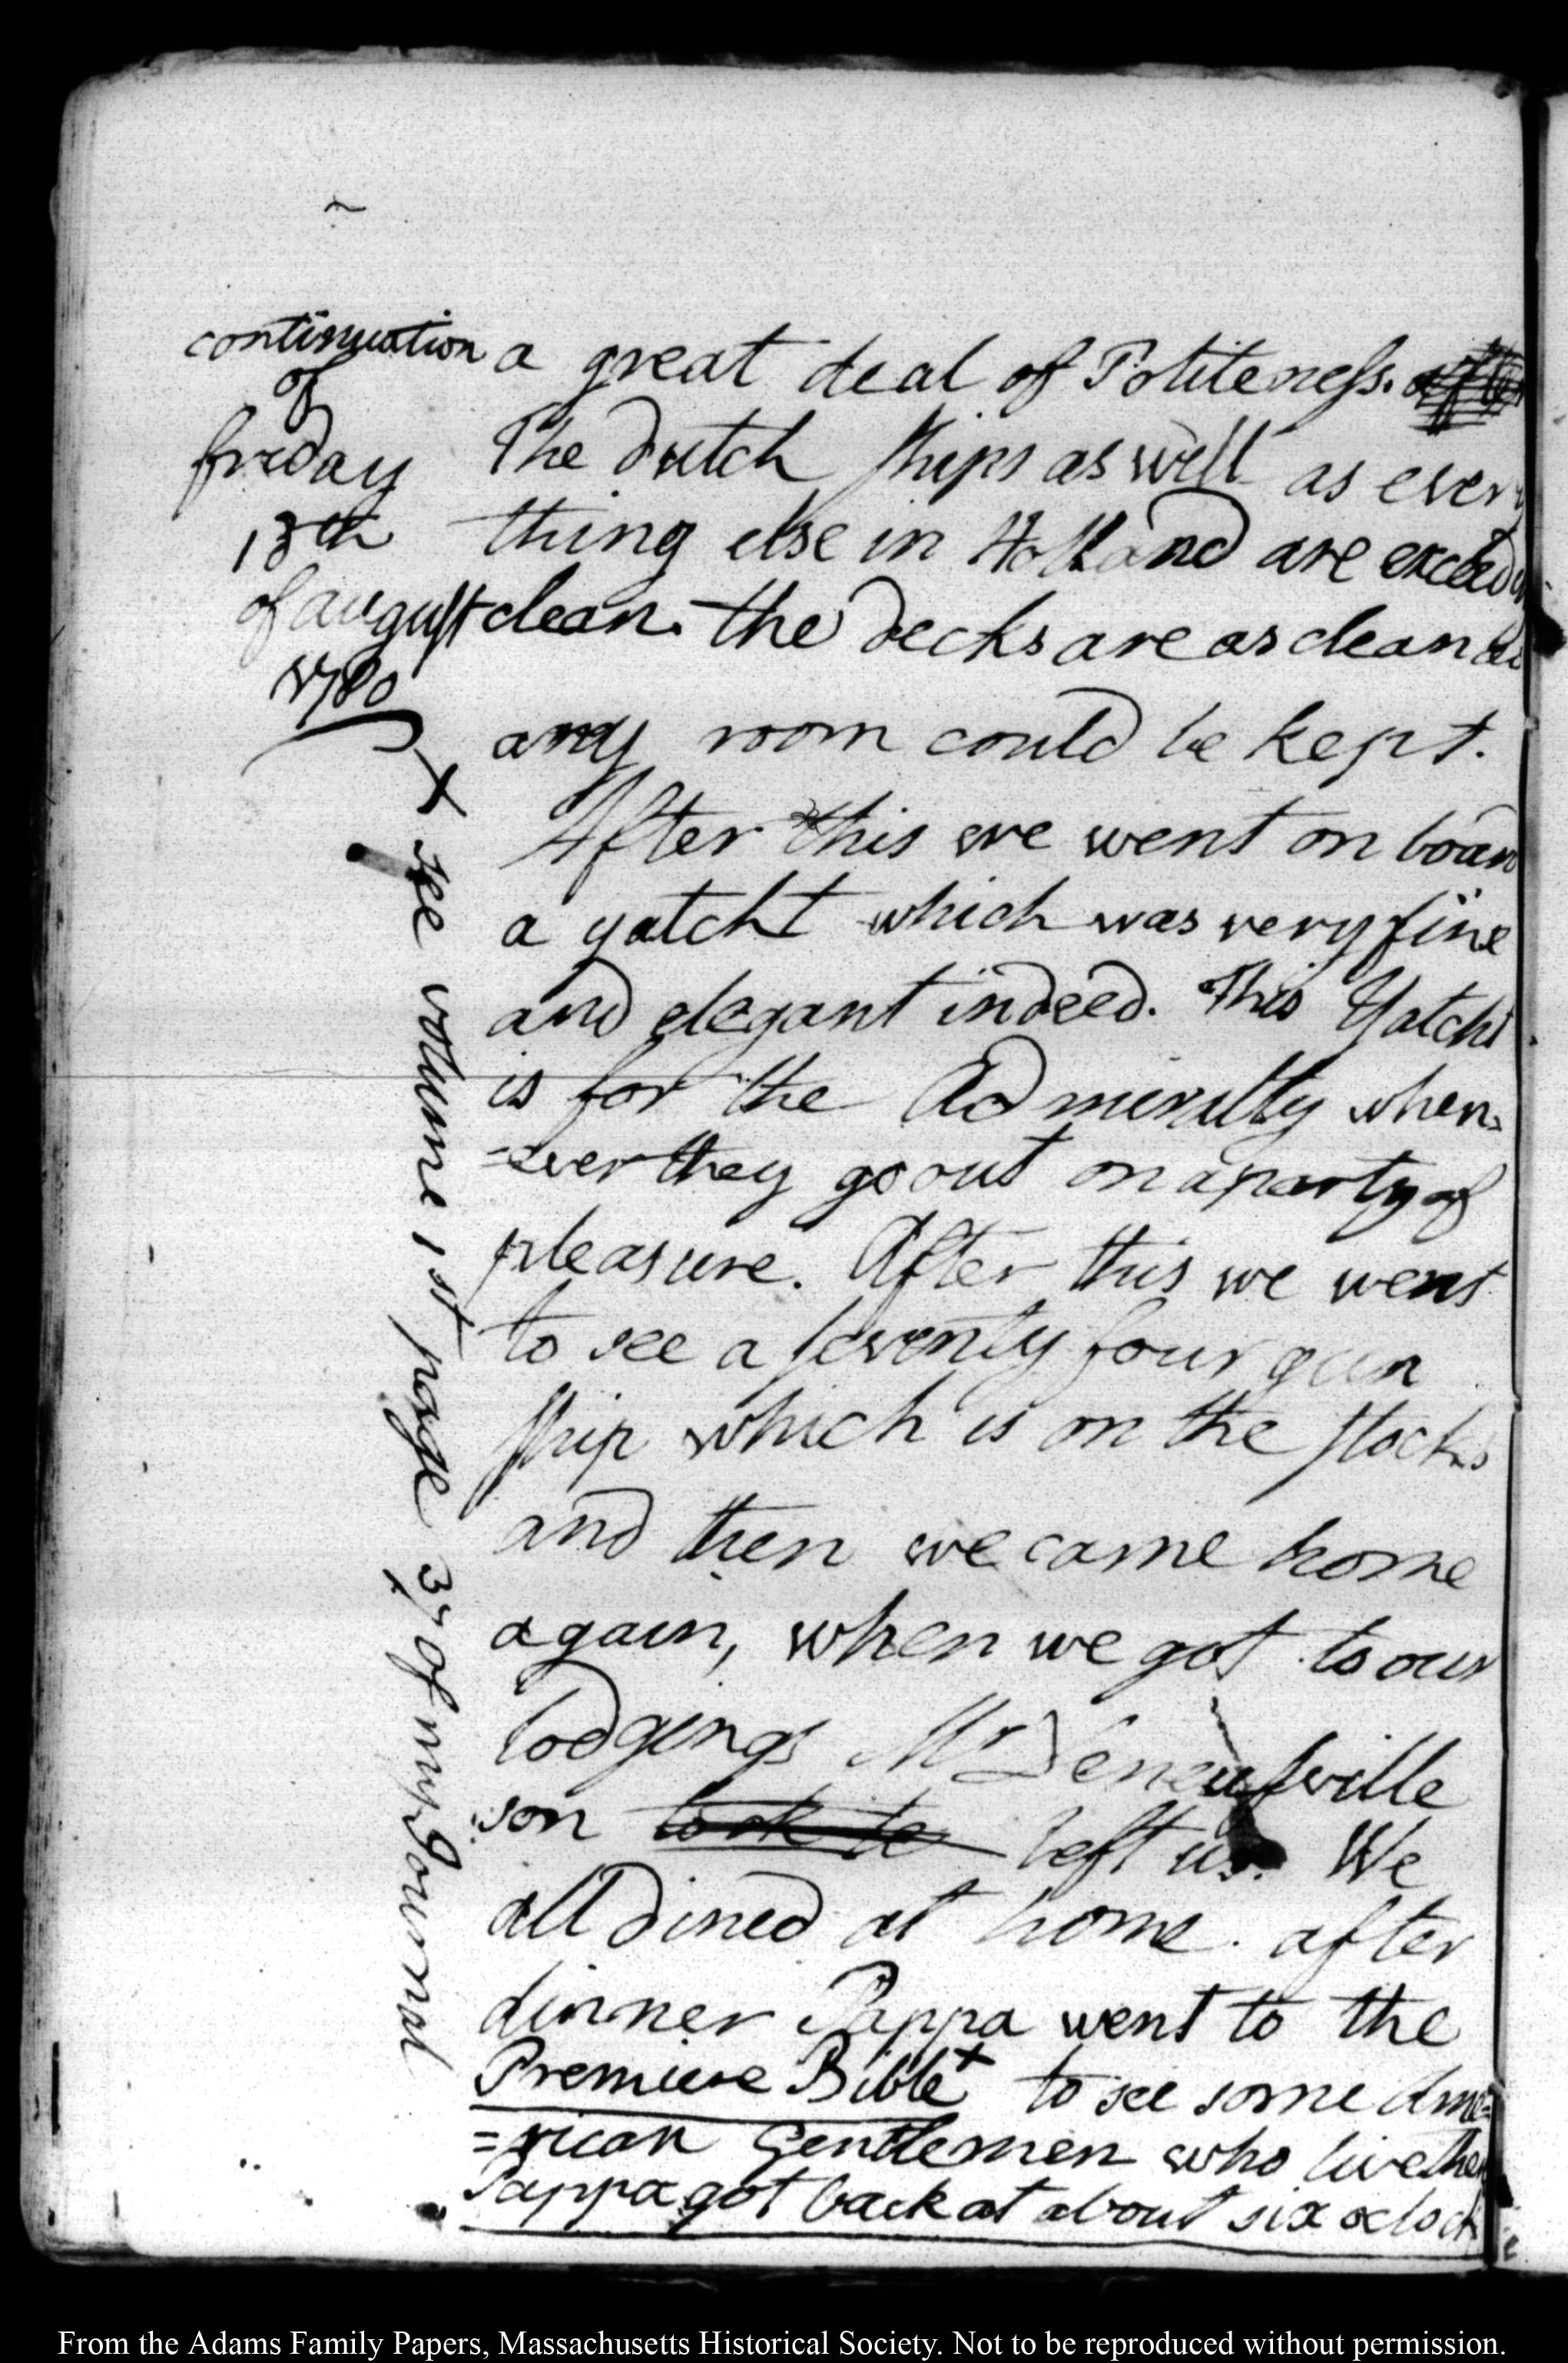 continuation
of
friday
18th
of august
1780
a great deal of Politeness. after
The dutch ships as well as every
thing else in Holland are exceeding
clean. the decks are as clean as
any room could be kept.
After this we went on board
a yatcht which was very fine
and elegant indeed. This Yatcht
is for the Admiralty when=
=ever they go out on a party of
pleasure. After this we went
to see a seventy four gun
ship which is on the stocks
and then we came home
again, when we got to our
lodgings Mr Deneufville
son took le left us. We
all dined at home. after
dinner Pappa went to the
Premiere Bible+ to see some Ame=
=rican Gentlemen who live there
Pappa got back at about six oclock
+ see volume 1st page 37 of my Journal
From the Adams Family Papers, Massachusetts Historical Society. Not to be reproduced without permission.